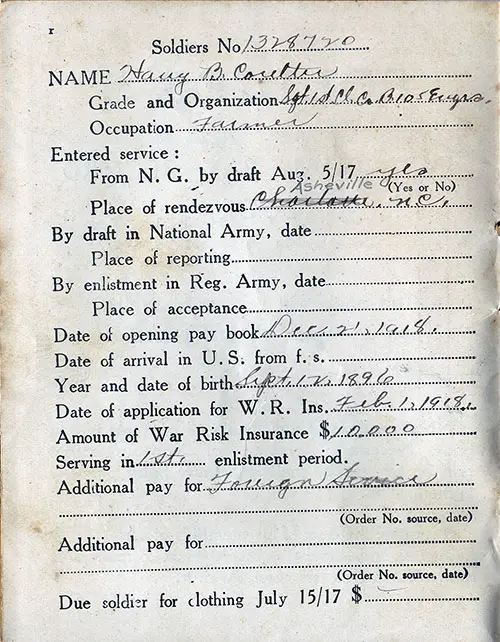 1
Soldiers No 1328720
NAME Harry B. Coulter
Grade and Organization Sgt 1st Cl. Co. B 105 Engrs.
Occupation Farmer
Entered service :
From N. G. by draft Aug. 5/17 yes
Asheville (Yes or No)
Place of rendezvous Charlotte, N.C.
By draft in National Army, date
Place of reporting
By enlistment in Reg. Army, date
Place of acceptance
Date of opening pay book Dec. 21, 1918.
Date of arrival in U. S. from f. s.
Year and date of birth Sept. 12, 1896
Date of application for W. R. Ins. Feb. 1, 1918.
Amount of War Risk Insurance $10,000
Serving in 1st. enlistment period.
Additional pay for Foreign Service
(Order No. source, date)
Additional pay for
(Order No. source, date)
Due soldier for clothing July 15/17 $